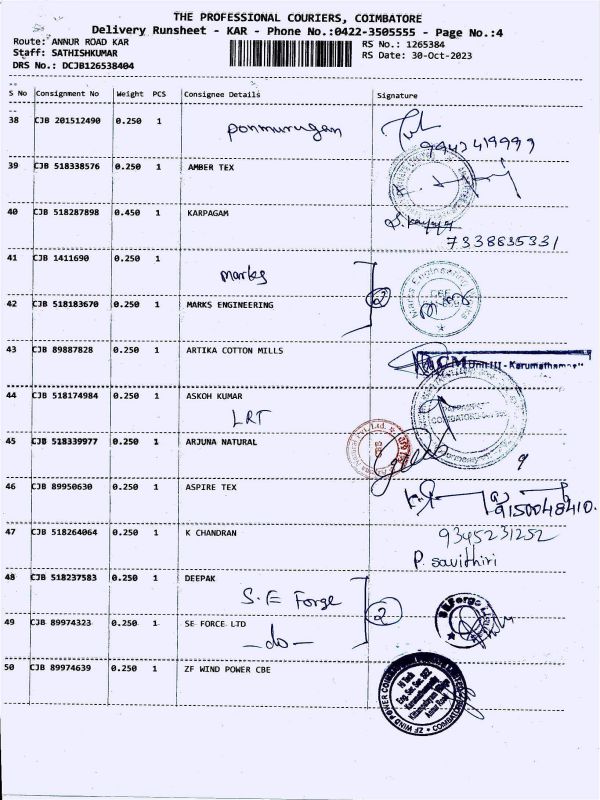 THE PROFESSIONAL COURIERS, COIMBATORE
Delivery Runsheet - KAR - Phone No.:0422-3505555 - Page No.:4
Route: ANNUR ROAD KAR RS No.: 1265384
Staff: SATHISHKUMAR RS Date: 30-Oct-2023
DRS No.: DCJB126538404
S No Consignment No Weight PCS Consignee Details Signature
38 CJB 201512490 0.250 1 Ponmurugan
9942419999
39 CJB 518338576 0.250 1 AMBER TEX
40 CJB 518287898 0.450 1 KARPAGAM
7338835331
41 CJB 1411690 0.250 1
Marks
42 CJB 518183670 0.250 1 MARKS ENGINEERING 2
Marks Engineering
43 CJB 89887828 0.250 1 ARTIKA COTTON MILLS
Unit III - Karumatham
44 CJB 518174984 0.250 1 ASKOH KUMAR
LRT
COIMBATORE
45 CJB 518339977 0.250 1 ARJUNA NATURAL
46 CJB 89950630 0.250 1 ASPIRE TEX
9150048410.
47 CJB 518264064 0.250 1 K CHANDRAN 9345231252
P. Savithiri
48 CJB 518237583 0.250 1 DEEPAK
S.E Forge 2
49 CJB 89974323 0.250 1 SE FORCE LTD
-do-
50 CJB 89974639 0.250 1 ZF WIND POWER CBE
ZF WIND POWER COIMBATORE
Hi Tech